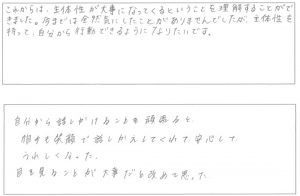 これからは、主体性が大事になってくるということを理解することがで
きました。今までは全然気にしたことがありませんでしたが、主体性を
持って、自分から行動できるようになりたいです。
自分から話しかけることを頑張ると、
相手も笑顔で話しかえしてくれて安心して
うれしくなった。
目を見ることが大事だと改めて思った。